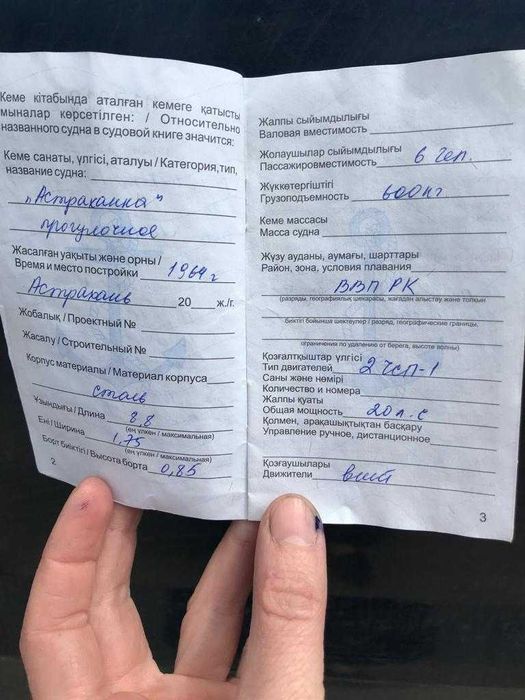 Кеме кітабында аталған кемеге қатысты
мыналар көрсетілген: / Относительно
названного судна в судовой книге значится:
Кеме санаты, үлгісі, аталуы / Категория,тип,
название судна:
"Астраханка"
прогулочное
Жасалған уақыты және орны /
Время и место постройки 1964 г
Астрахань 20 ж./г.
Жобалық / Проектный №
Жасалу / Строительный №
Корпус материалы / Материал корпуса
сталь
Ұзындығы / Длина 8,8
(ең үлкен / максимальная)
Ені / Ширина 1,75
(ең үлкен / максимальная)
Борт биіктігі / Высота борта 0,85
2
Жалпы сыйымдылығы
Валовая вместимость
Жолаушылар сыйымдылығы
Пассажировместимость 6 чел.
Жүккөтергіштігі
Грузоподъемность 600кг
Кеме массасы
Масса судна
Жүзу ауданы, аумағы, шарттары
Район, зона, условия плавания
ВВП РК
(разряды, географиялық шекарасы, жағадан алыстау және толқын
биіктігі бойынша шектеулер / разряд, географические границы,
ограничения по удалению от берега, высоте волны)
Қозғалтқыштар үлгісі
Тип двигателей 2 чсп-1
Саны және нөмірі
Количество и номера
Жалпы қуаты
Общая мощность 20 л.с
Қолмен, арақашықтықтан басқару
Управление ручное, дистанционное
Қозғаушылары
Движители винт
3